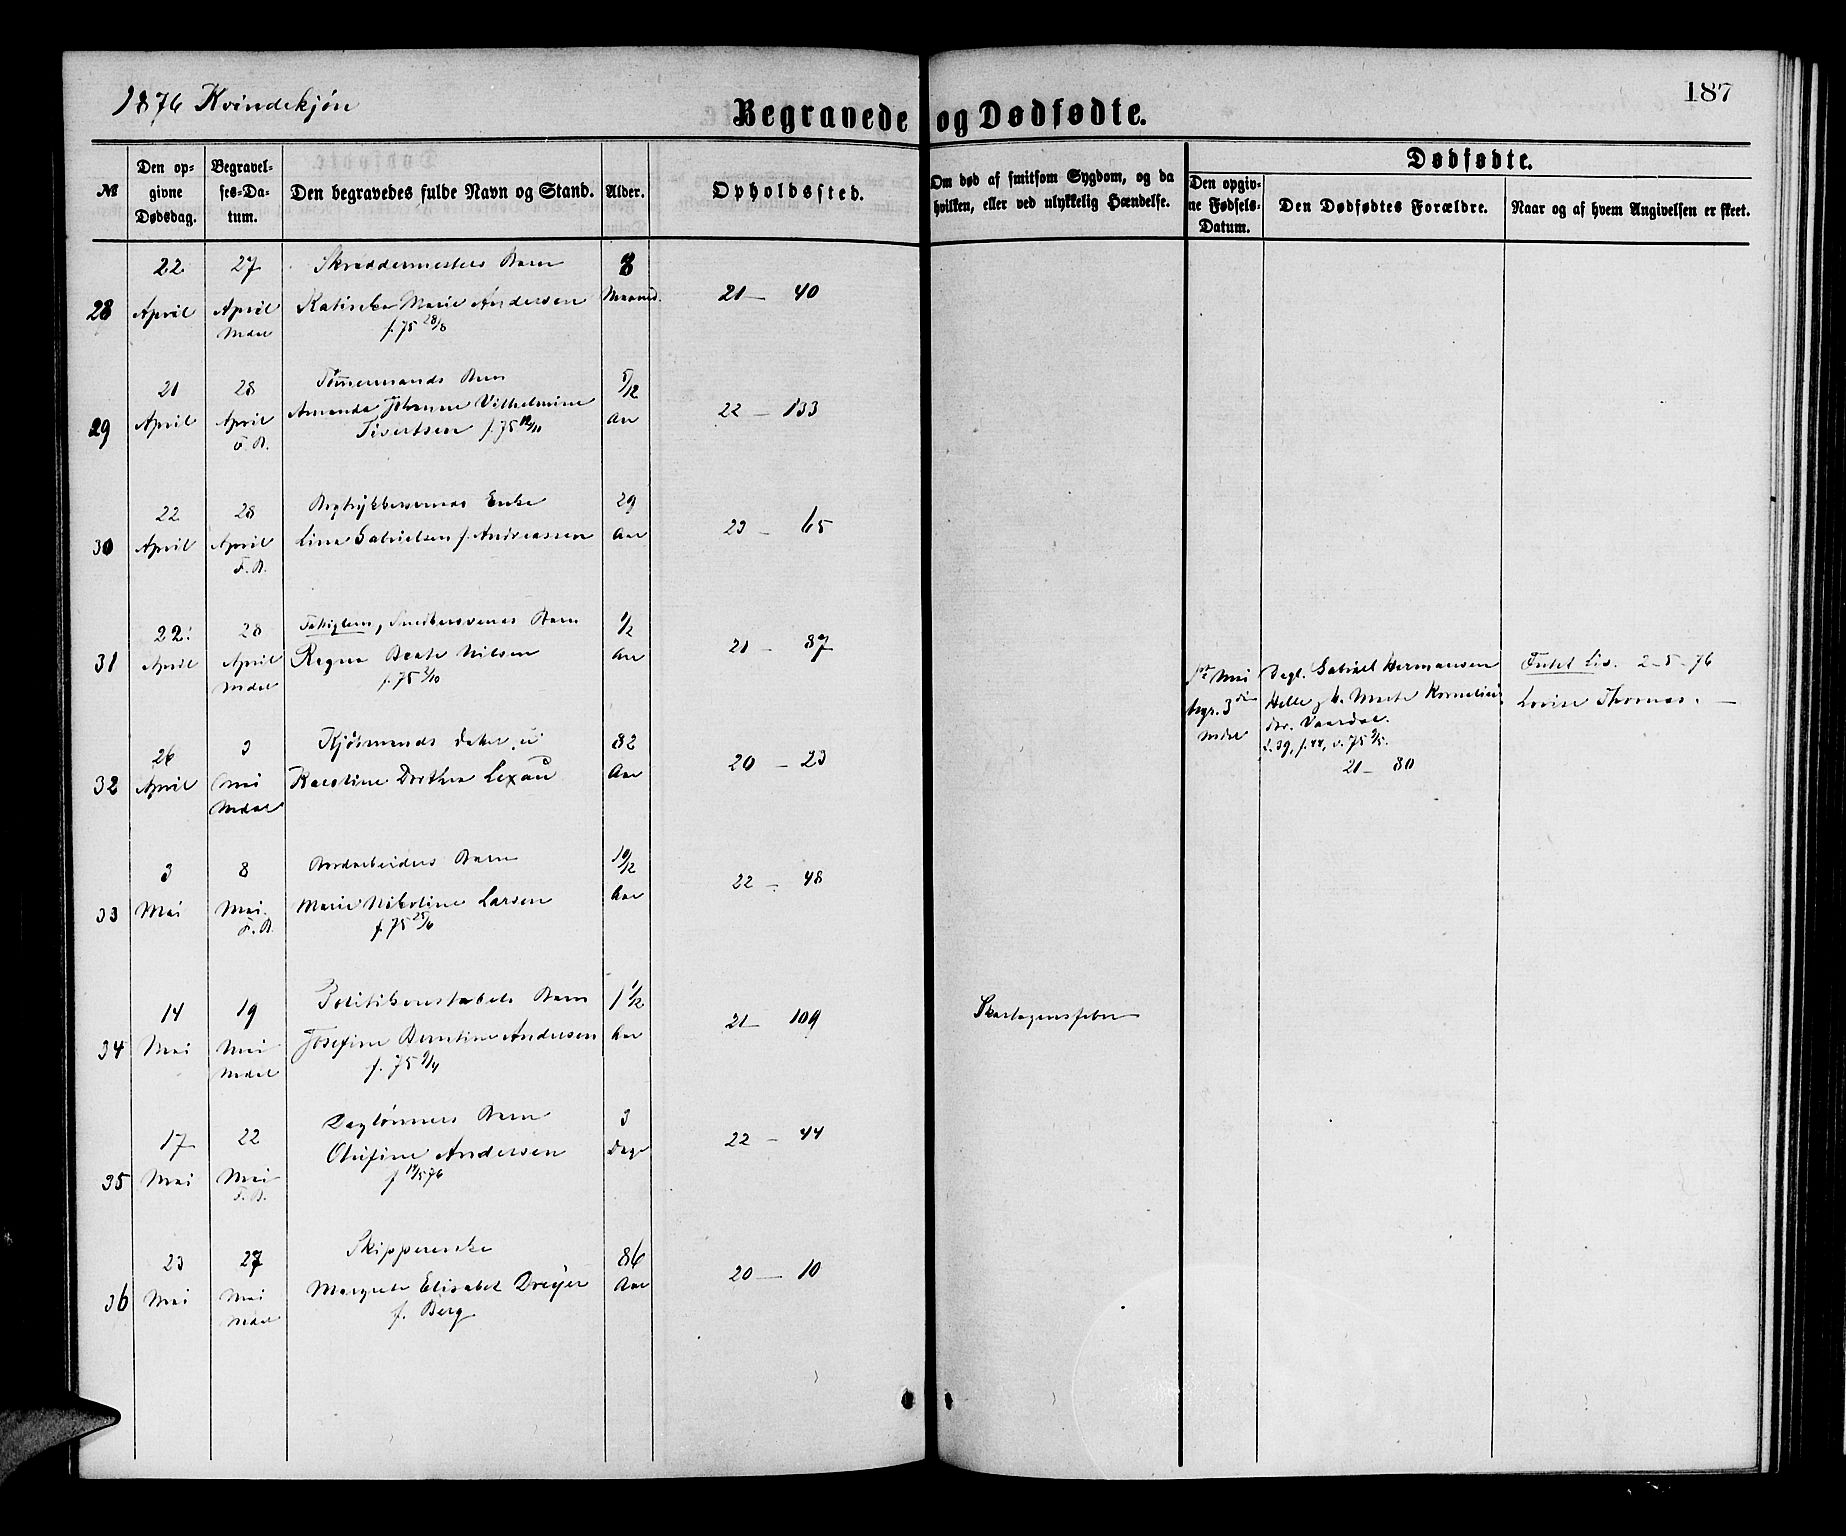 1876 Kvindekjön
187
Begravede og Dødfødte.
№
Den op-
givne
Dødsdag.
Begravel-
ses-Da-
tum.
Den begravedes fulde Navn og Stand.
Alder.
Opholdssted.
Om død af smitsom Sygdom, og da
hvilken, eller ved ulykkelig Hændelse.
Dødfødte.
Den opgiv-
ne Fødsels-
Datum.
Den Dødfødtes Forældre.
Naar og af hvem Angivelsen er skeet.
28
22
April
27
April
Mdal
Skræddermesters Barn
Marie Andersen
f. 75 28/8
8
Maaned.
21 — 40
29
21
April
28
April
F. B.
Tömmermands Barn
Amanda Johanne Vilhelmine
Sivertsen f. 75 12/11
5/12
Aar
22 — 133
30
22
April
28
April
F. B.
Bogtrykkersvends Enke
Lina Gabrielsen f. Andreassen
29
Aar
23 — 65
31
22.
April
28
April
Mdal
Smedersvends Barn
Ragna Beate Nilsen
f. 75
1/2
Aar
21 — 87
32
26
April
3
Mai
Mdal
Kjöbmands Datter, u
Karoline Dorthea Lexau
82
Aar
20 — 23
1ste Mai
begr. 3die
Mdal
Dagl. Gabriel Hermansen
Helle, h. Marte Kornelie
Vaardal.
f. 39, f. 44, v. 75
21 — 80
Intet Liv. 2-5-76
Lovise Thomas. —
33
3
Mai
8
Mai.
F. B.
Bordarbeiders Barn
Marie Nikoline Larsen
f. 75 25/6
10/12
Aar
22 — 48
34
14
Mai
19
Mai
Mdal
Politikonstabels Barn
Josefine Berntine Andersen
f. 75 9/4
1 1/12
Aar
21 — 109
Skarlagensfeber
35
17
Mai
22
Mai
F. B.
Daglönners Barn
Olufine Andersen
f 14/5 76
3
Dage
22 — 44
36
23
Mai
27
Mai
Mdal
Skipperenke
Margrete Elisabet Dreyer
f. Berg
86
Aar
20 — 10